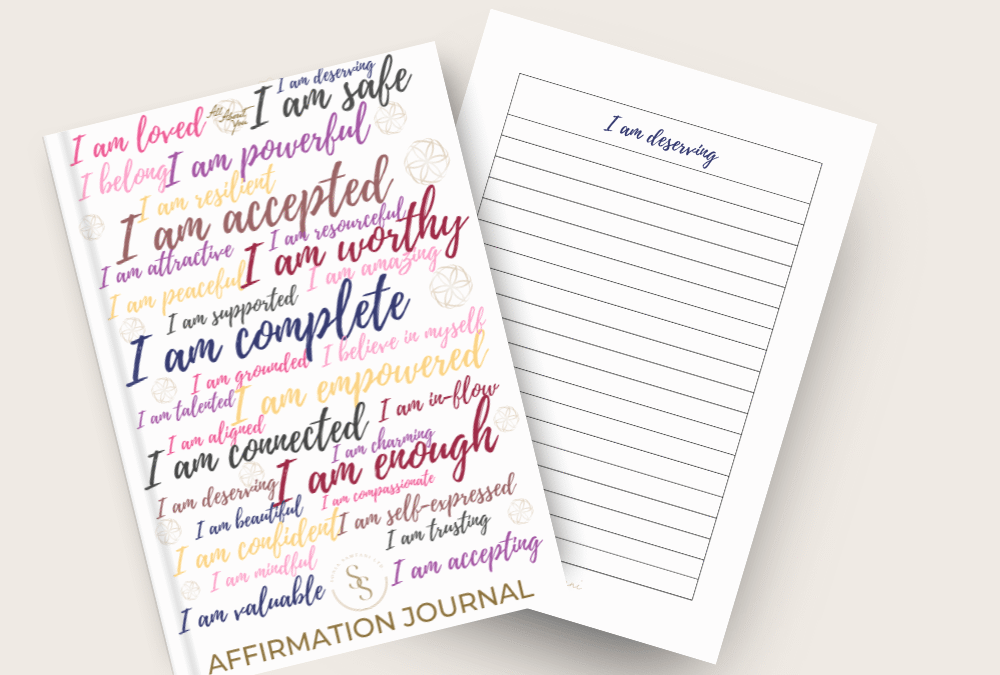 I am deserving
I am safe
I am loved
All About You
I am powerful
I belong
I am resilient
I am accepted
I am resourceful
I am attractive
I am worthy
I am amazing
I am peaceful
I am supported
I am complete
I believe in myself
I am grounded
I am empowered
I am talented
I am in-flow
I am aligned
I am connected
I am charming
I am enough
I am deserving
I am compassionate
I am beautiful
I am self-expressed
I am confident
I am trusting
I am mindful
I am accepting
SS
I am valuable
AFFIRMATION JOURNAL
I am deserving